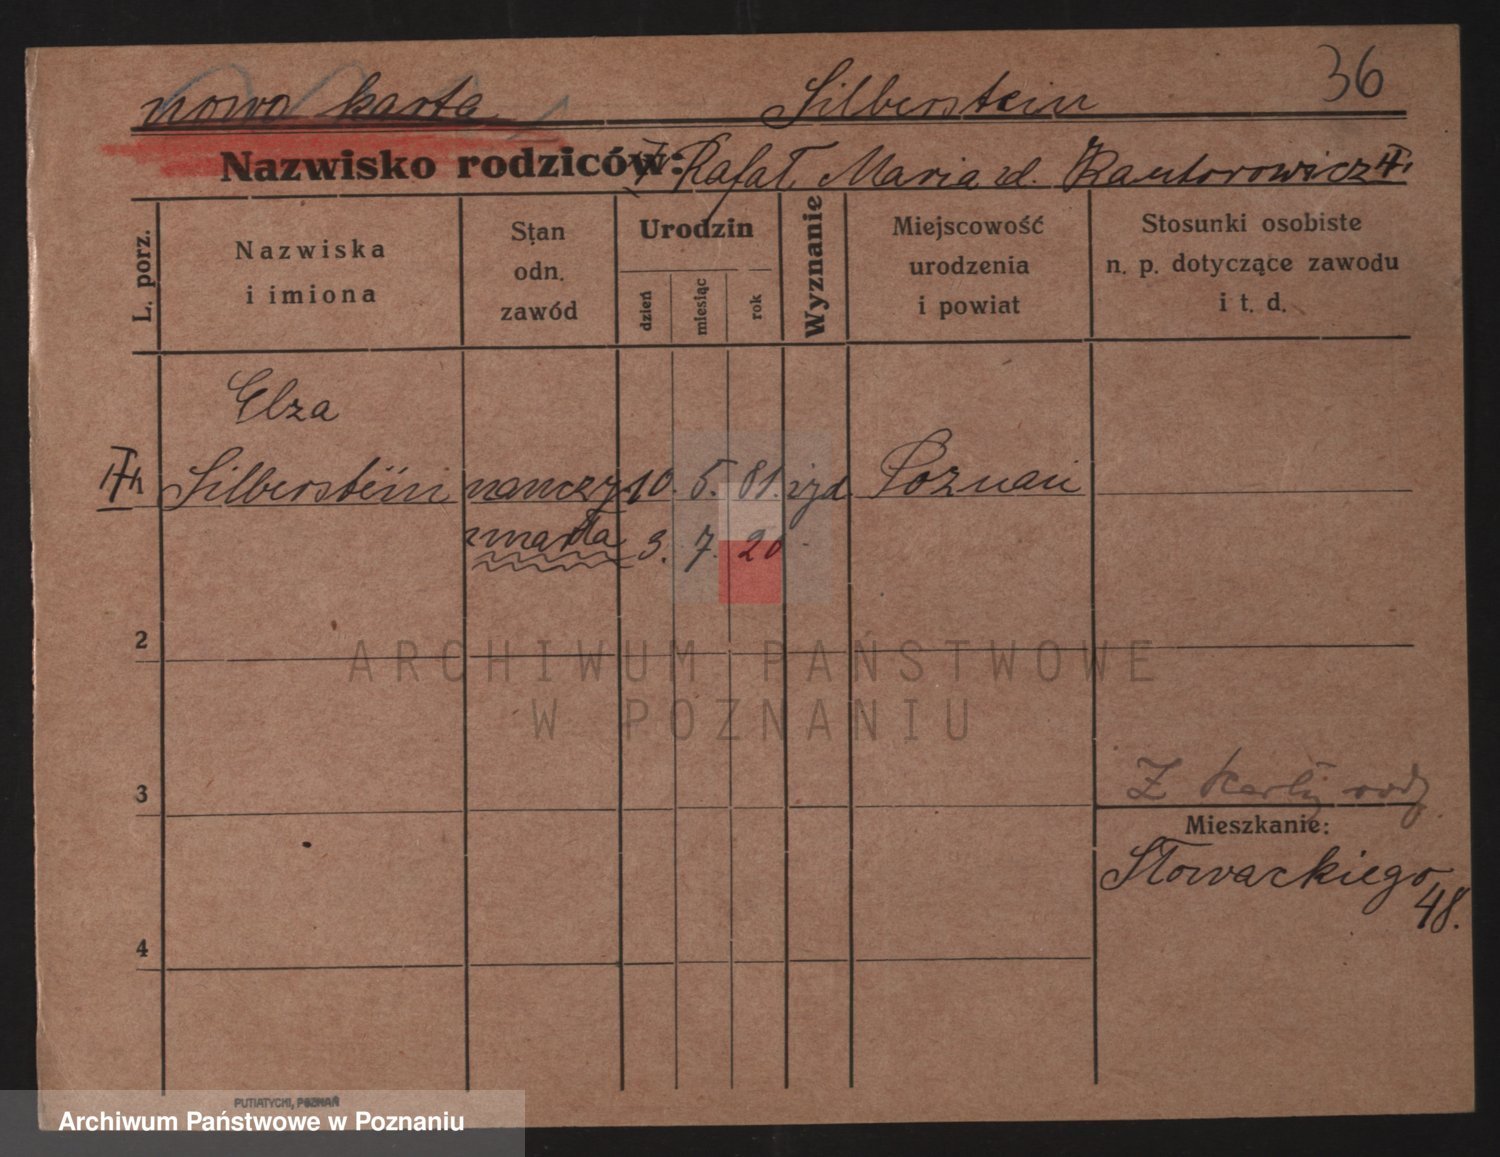 nowa karta Silberstein 36
Nazwisko rodziców: Rafał, Maria zd. Kantorowicz
L. porz.
Nazwiska
i imiona
Stan
odn.
zawód
Urodzin
dzień
miesiąc
rok
Wyznanie
Miejscowość
urodzenia
i powiat
Stosunki osobiste
n. p. dotyczące zawodu
i t. d.
Elza
Silberstein nauczy 10. 5. 81. żyd Poznań
zmarła 3. 7. 20
2
3
Z karty rodz.
Mieszkanie:
Słowackiego
48.
4
PUTIATYCKI, POZNAŃ
ARCHIWUM PAŃSTWOWE
W POZNANIU
Archiwum Państwowe w Poznaniu